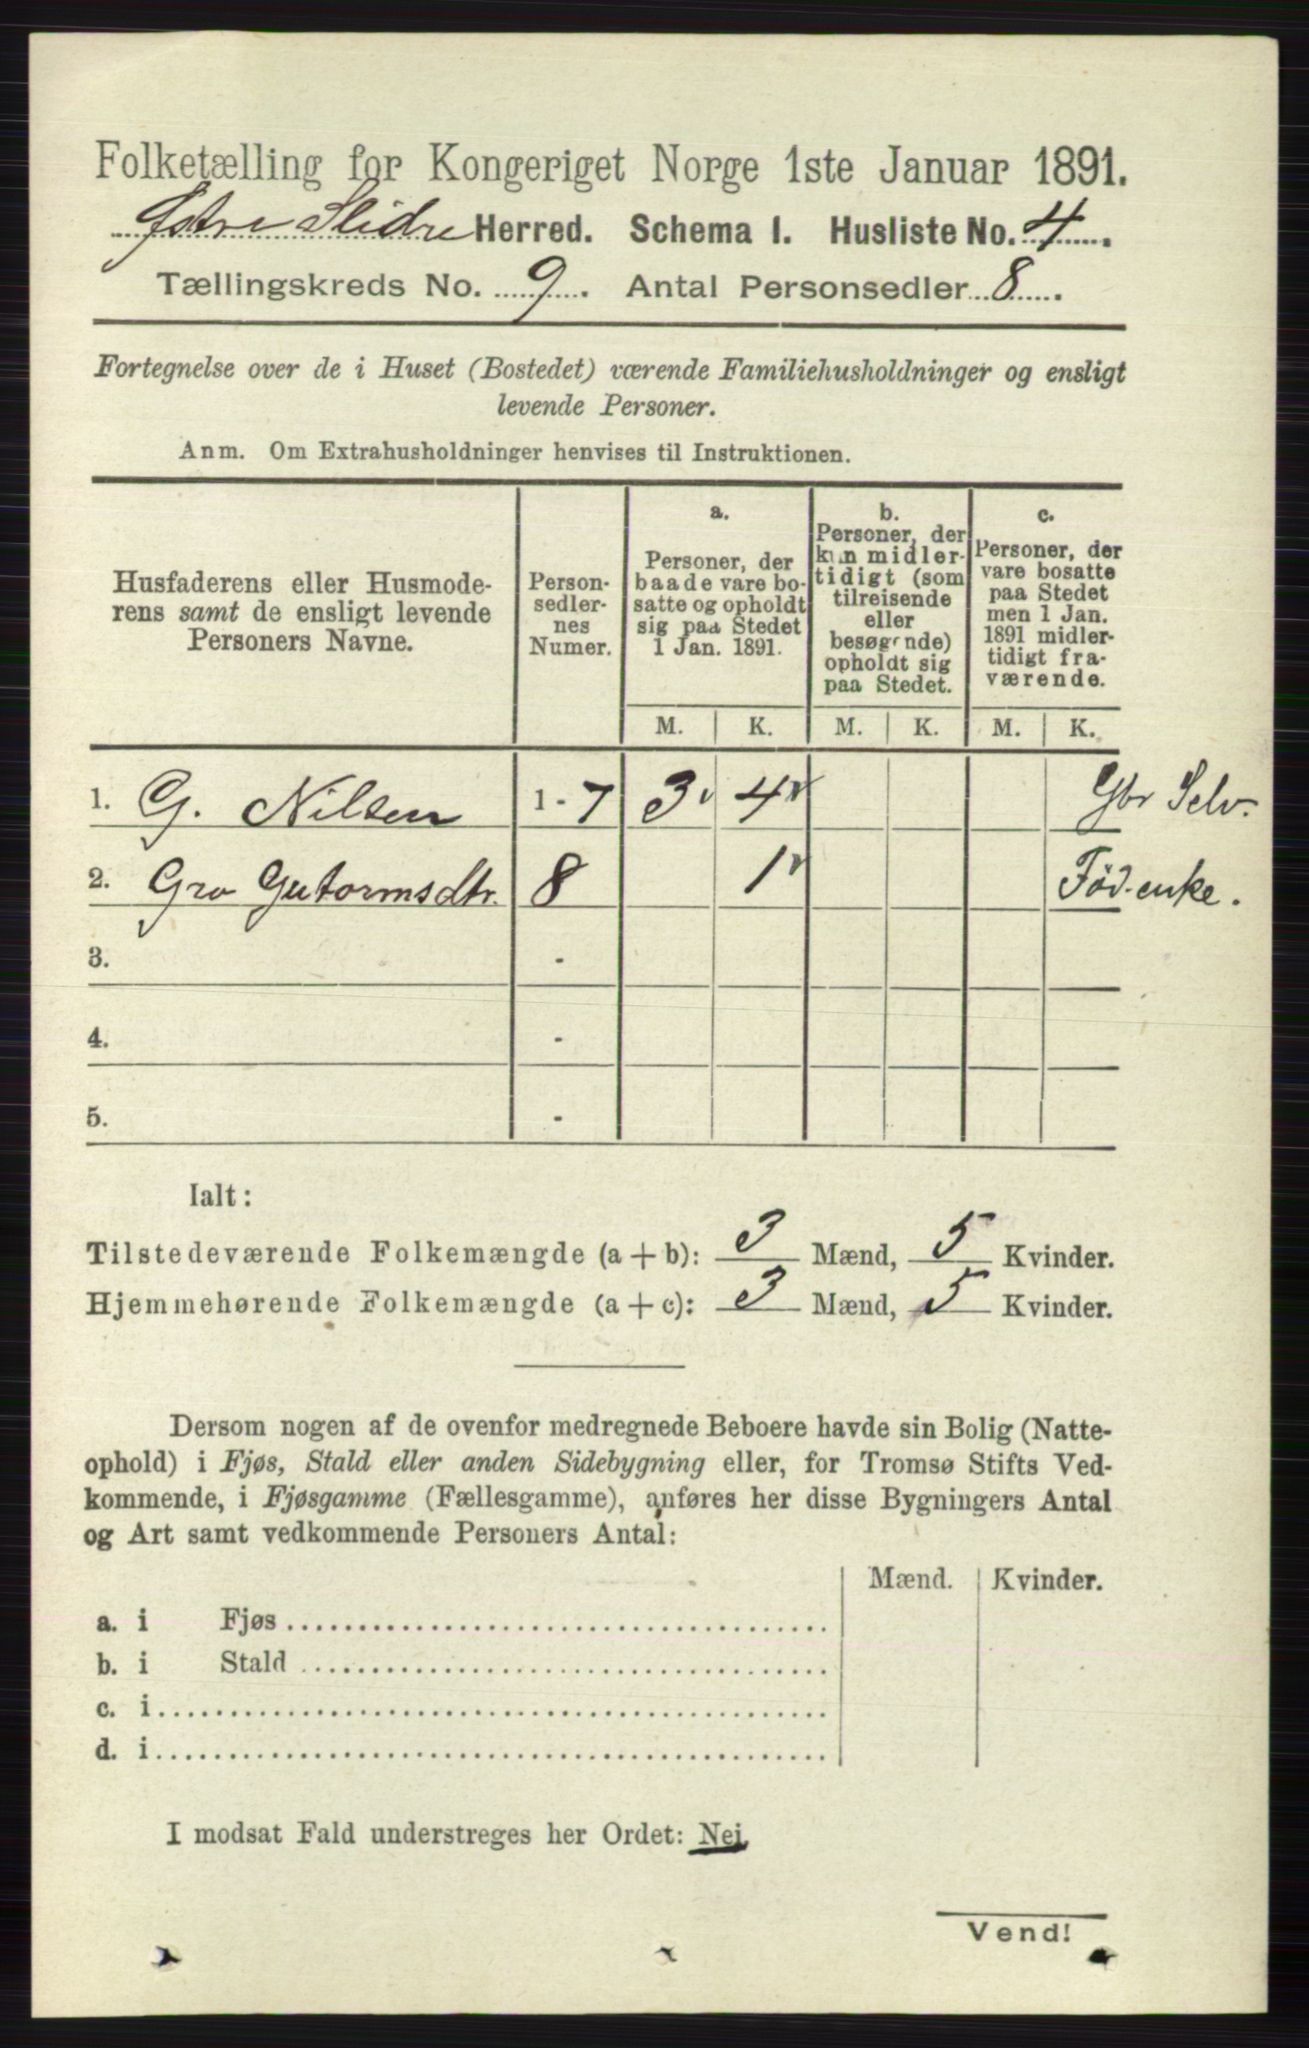 Folketælling for Kongeriget Norge 1ste Januar 1891.
Østre Slidre Herred. Schema 1. Husliste No. 4.
Tællingskreds No. 9. Antal Personsedler 8.
Fortegnelse over de i Huset (Bostedet) værende Familiehusholdninger og ensligt
levende Personer.
Anm. Om Extrahusholdninger henvises til Instruktionen.
Husfaderens eller Husmode-
rens samt de ensligt levende
Personers Navne.
Person-
sedler-
nes
Numer.
a.
Personer, der
baade vare bo-
satte og opholdt
sig paa Stedet
1 Jan. 1891.
b.
Personer, der
kun midler-
tidigt (som
tilreisende
eller
besøgende)
opholdt sig
paa Stedet.
c.
Personer, der
vare bosatte
paa Stedet
men 1 Jan.
1891 midler-
tidigt fra-
værende.
M. K. M. K. M. K.
1. G. Nilsen 1 - 7 3 4 Gbr Selv.
2. Gro Gutormsdtr. 8 1 Föd.enke.
3. -
4. -
5. -
Ialt:
Tilstedeværende Folkemængde (a + b): 3 Mænd, 5 Kvinder.
Hjemmehørende Folkemængde (a + c): 3 Mænd, 5 Kvinder.
Dersom nogen af de ovenfor medregnede Beboere havde sin Bolig (Natte-
ophold) i Fjøs, Stald eller anden Sidebygning eller, for Tromsø Stifts Ved-
kommende, i Fjøsgamme (Fællesgamme), anføres her disse Bygningers Antal
og Art samt vedkommende Personers Antal:
Mænd. Kvinder.
a. i Fjøs
b. i Stald
c. i
d. i
I modsat Fald understreges her Ordet: Nei
Vend!